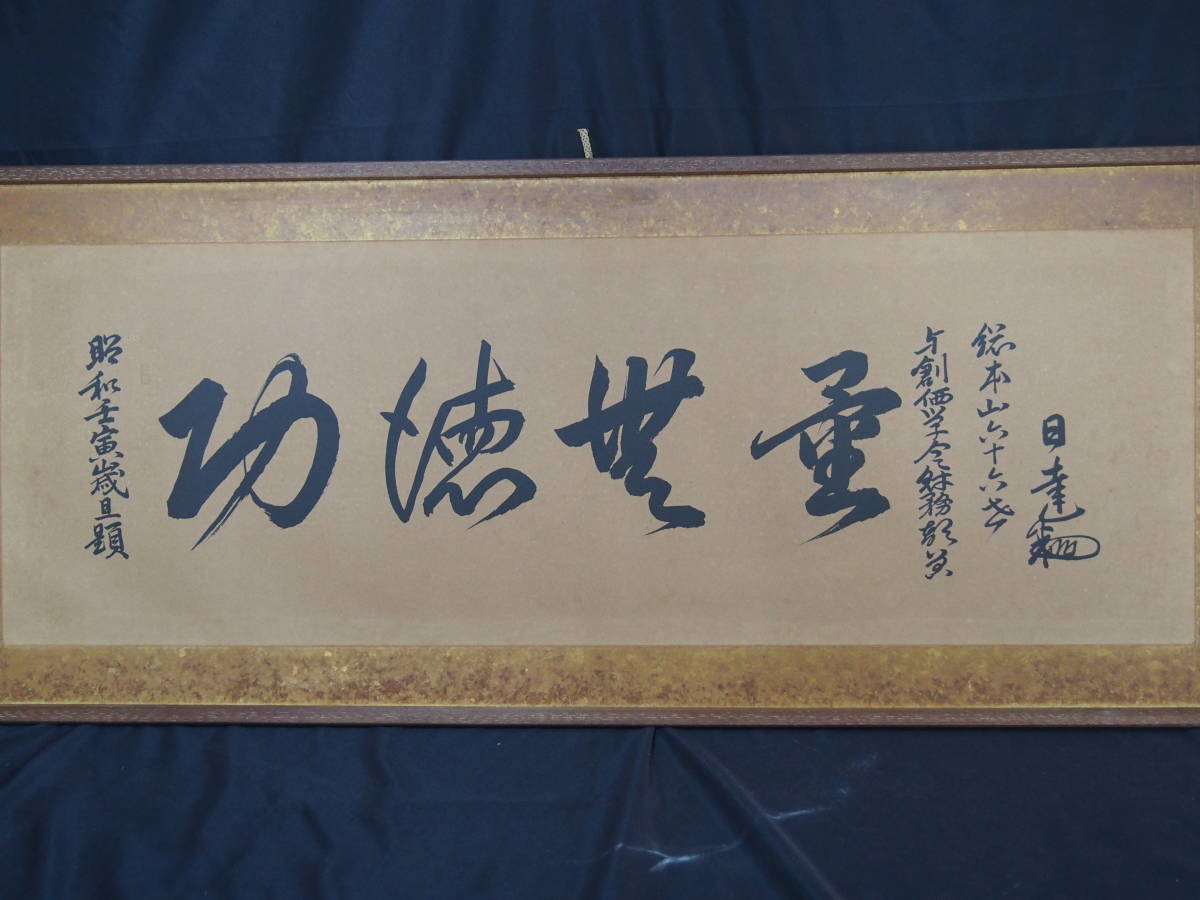 昭和壬寅歳旦題
功徳無量
与創価学会財務部員
総本山六十六世
日達